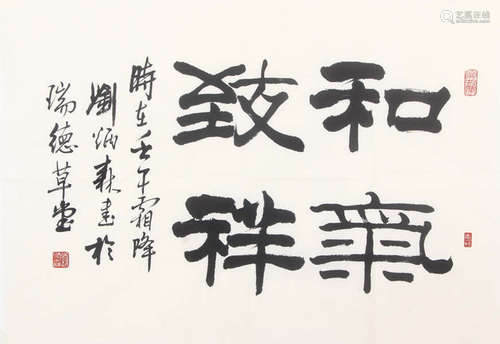 和氣
致祥
時在壬午霜降
劉炳森書於
瑞德草堂
艺狐在线